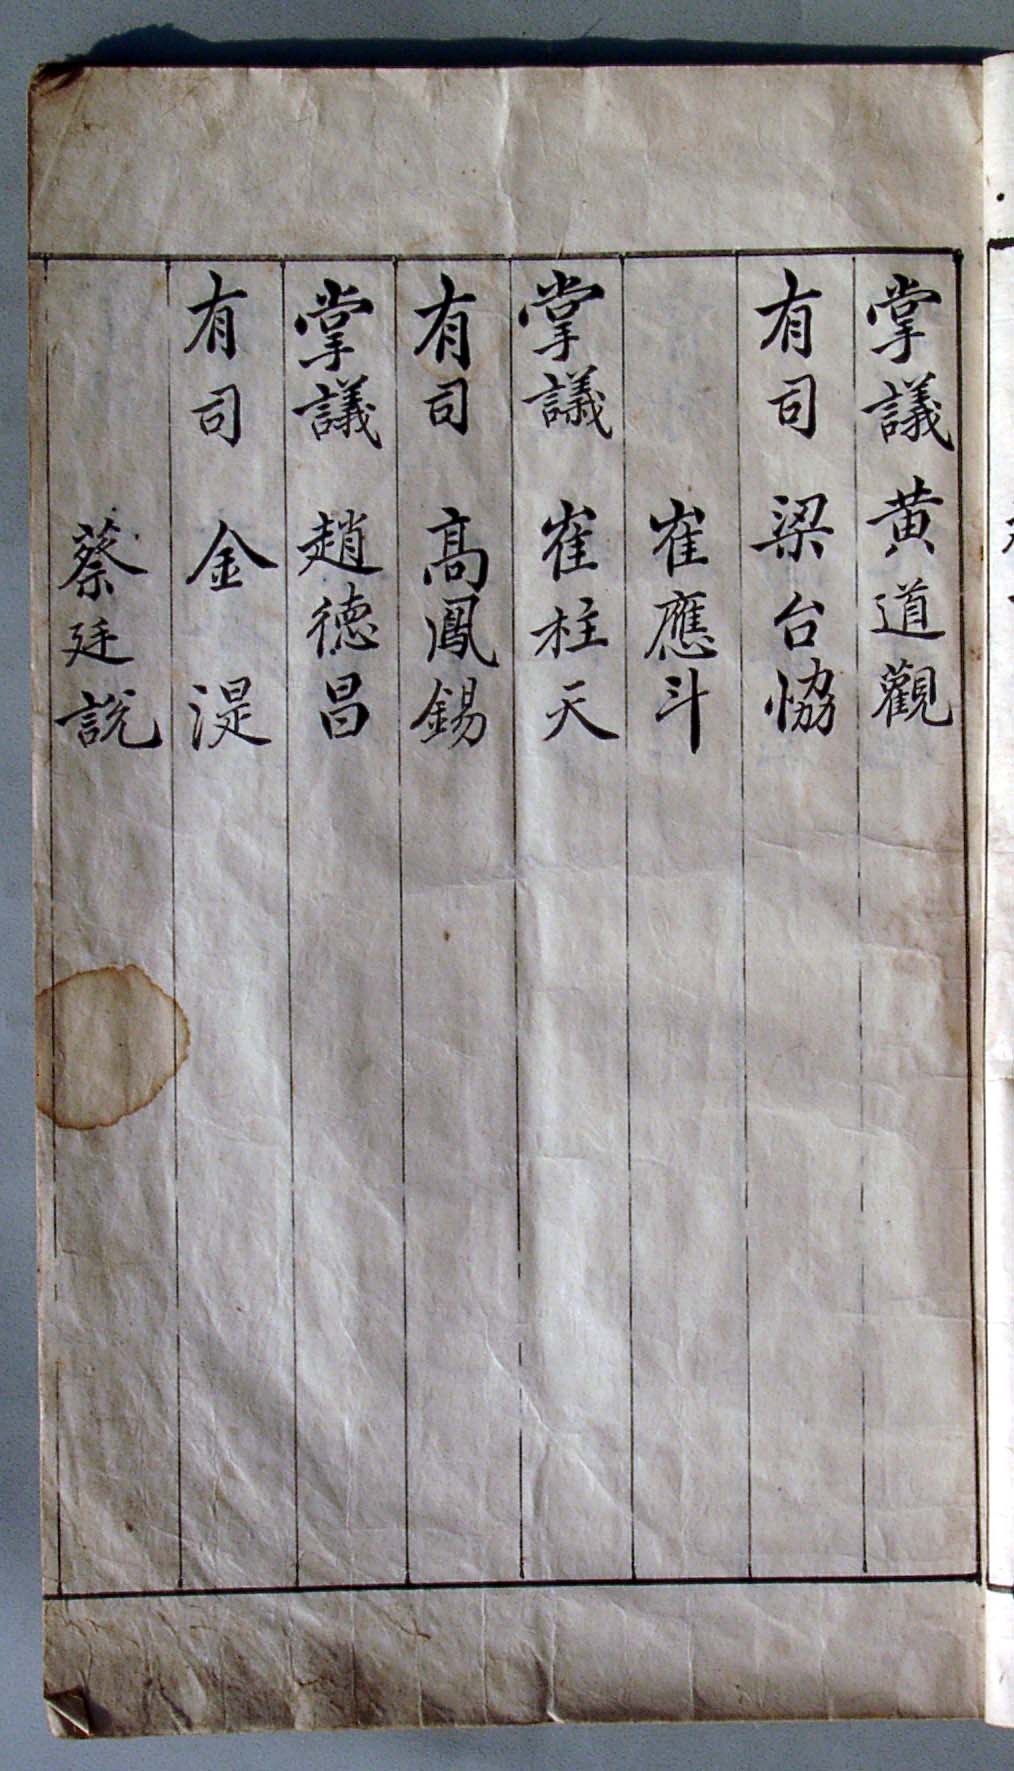 掌議 黃道觀
有司 梁台恊
崔應斗
掌議 崔柱天
有司 高鳳錫
掌議 趙德昌
有司 金湜
蔡廷說